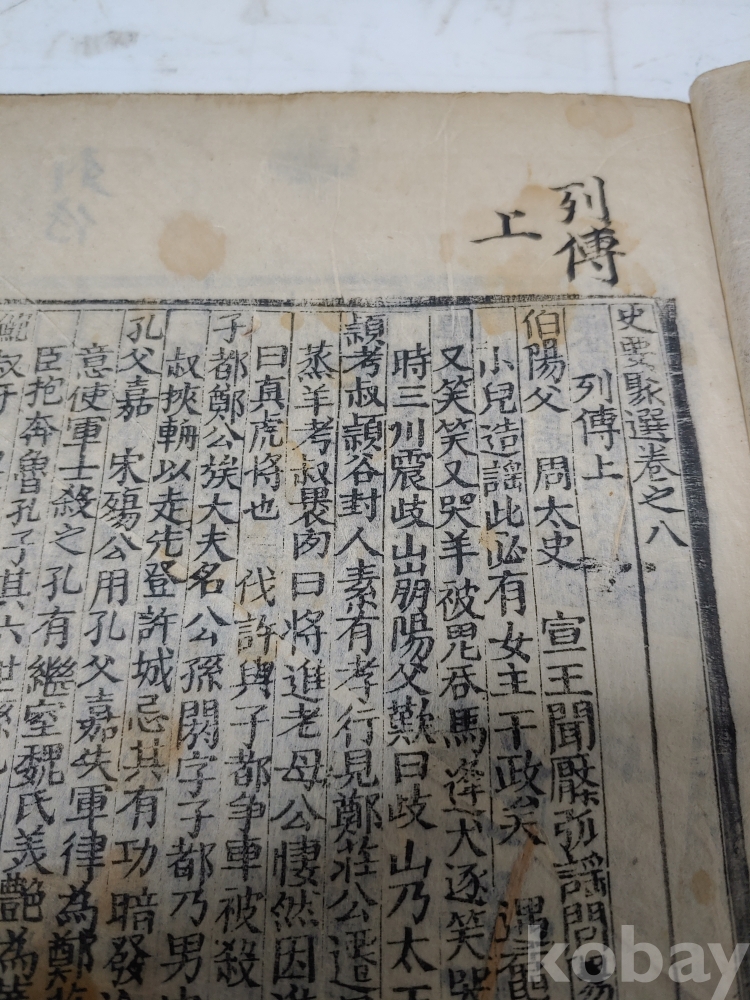 列傳
上
史要聚選卷之八
列傳上
伯陽父 周太史 宣王聞檿弧謠問
小兒造謠此必有女主干政矣 遇
又笑笑又哭羊被鬼吞馬逢犬逐笑哭
時三川震歧山崩陽父歎曰歧山乃太王
頴考叔頴谷封人素有孝行見鄭莊公遷
蒸羊考叔褁肉曰將進老母公悽然因
曰真虎將也 伐許與子都爭車被殺
子都鄭公族大夫名公孫閼字子都乃男
叔挾輈以走先登許城忌其有功暗發
孔父嘉 宋殤公用孔父嘉失軍律為鄭
意使軍士殺之孔有繼室魏氏美艷為
臣抱奔魯孔子其六世孫
kobay